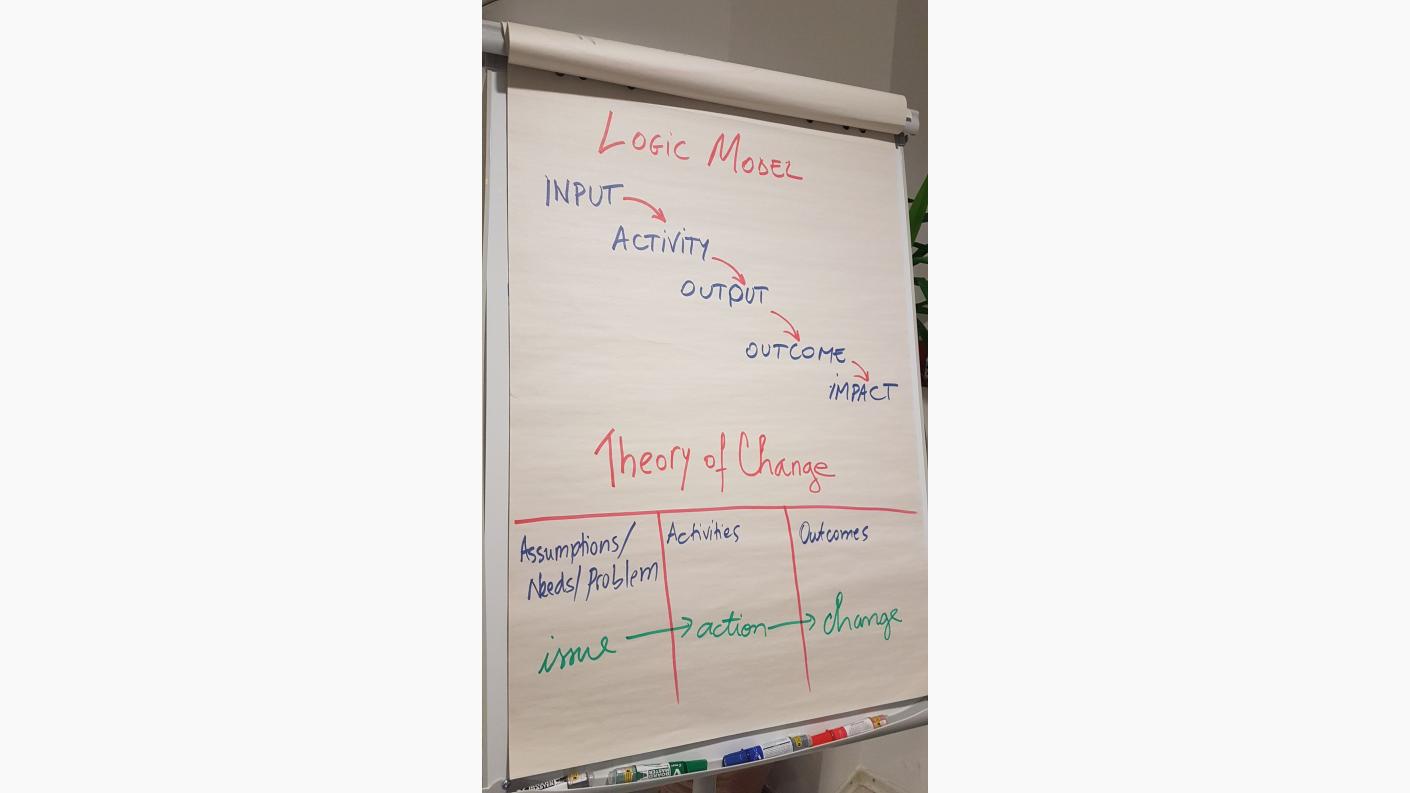 LOGiC MODEL
INPUT
ACTiViTY
OUTPUT
OUTCOME
iMPACT
Theory of Change
Assumptions/
Needs/Problem
Activities
Outcomes
issue → action → change
BOARD
MASTER